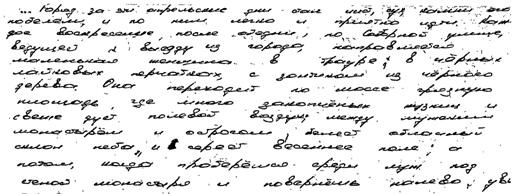 ... Город за эти апрельские дни стал чист, сух, камни его
побелели, и по ним легко и приятно идти. Каж-
дое воскресение, после обедни, по Соборной улице,
ведущей к выезду из города, направляется
маленькая женщина в трауре, в чёрных
лайковых перчатках, с зонтиком из чёрного
дерева. Она переходит по шоссе грязную
площадь, где много закопчённых кузниц и
свежо дует полевой воздух; между мужским
монастырём и острогом белеет облачный
склон неба и сереет весеннее поле, а
потом, когда проберёшься среди луж под
стеной монастыря и повернёшь налево, уви